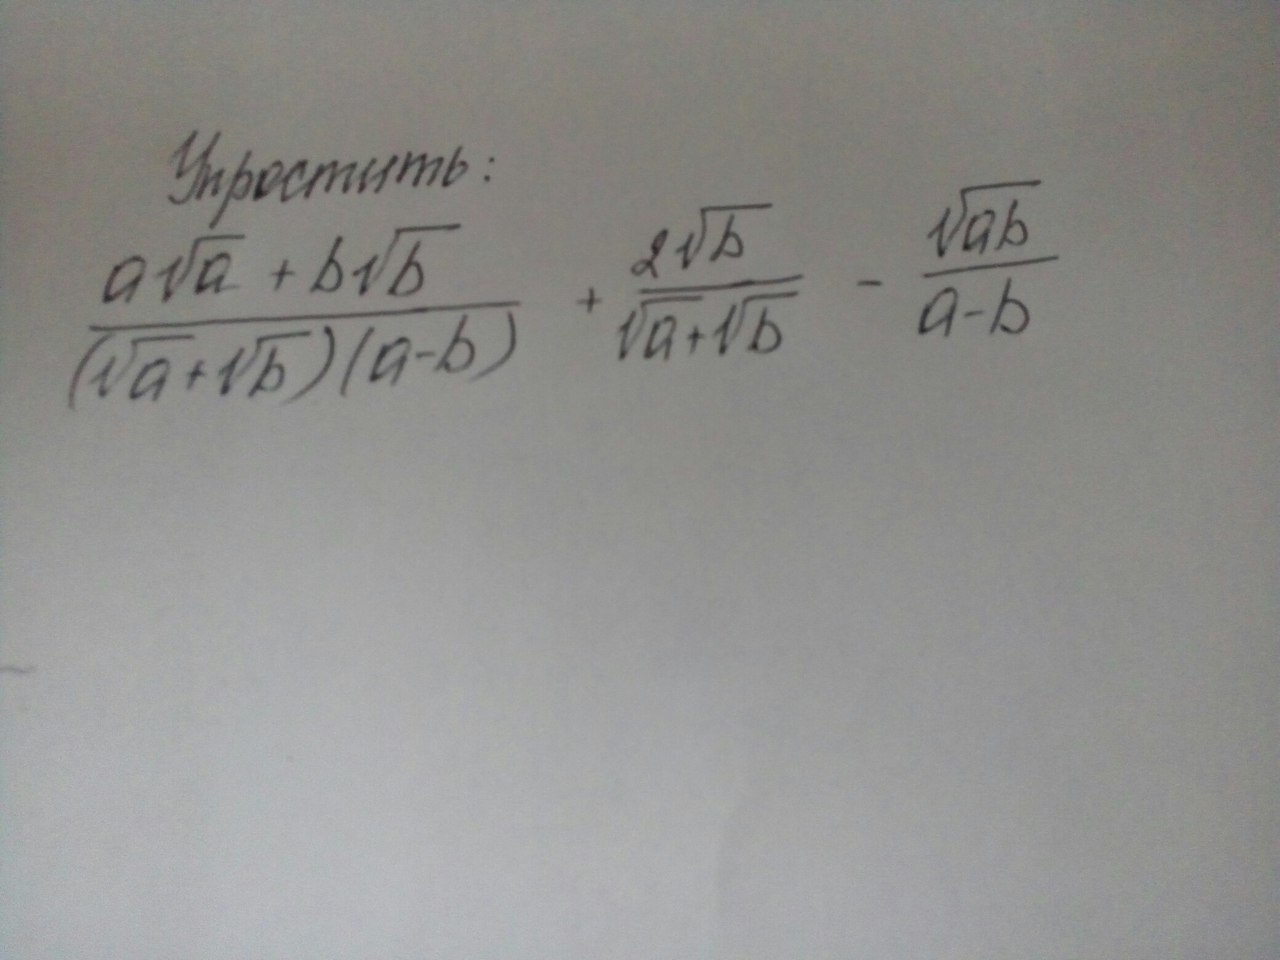 Упростить:
\frac{a\sqrt{a} + b\sqrt{b}}{(\sqrt{a}+\sqrt{b})(a-b)} + \frac{2\sqrt{b}}{\sqrt{a}+\sqrt{b}} - \frac{\sqrt{ab}}{a-b}